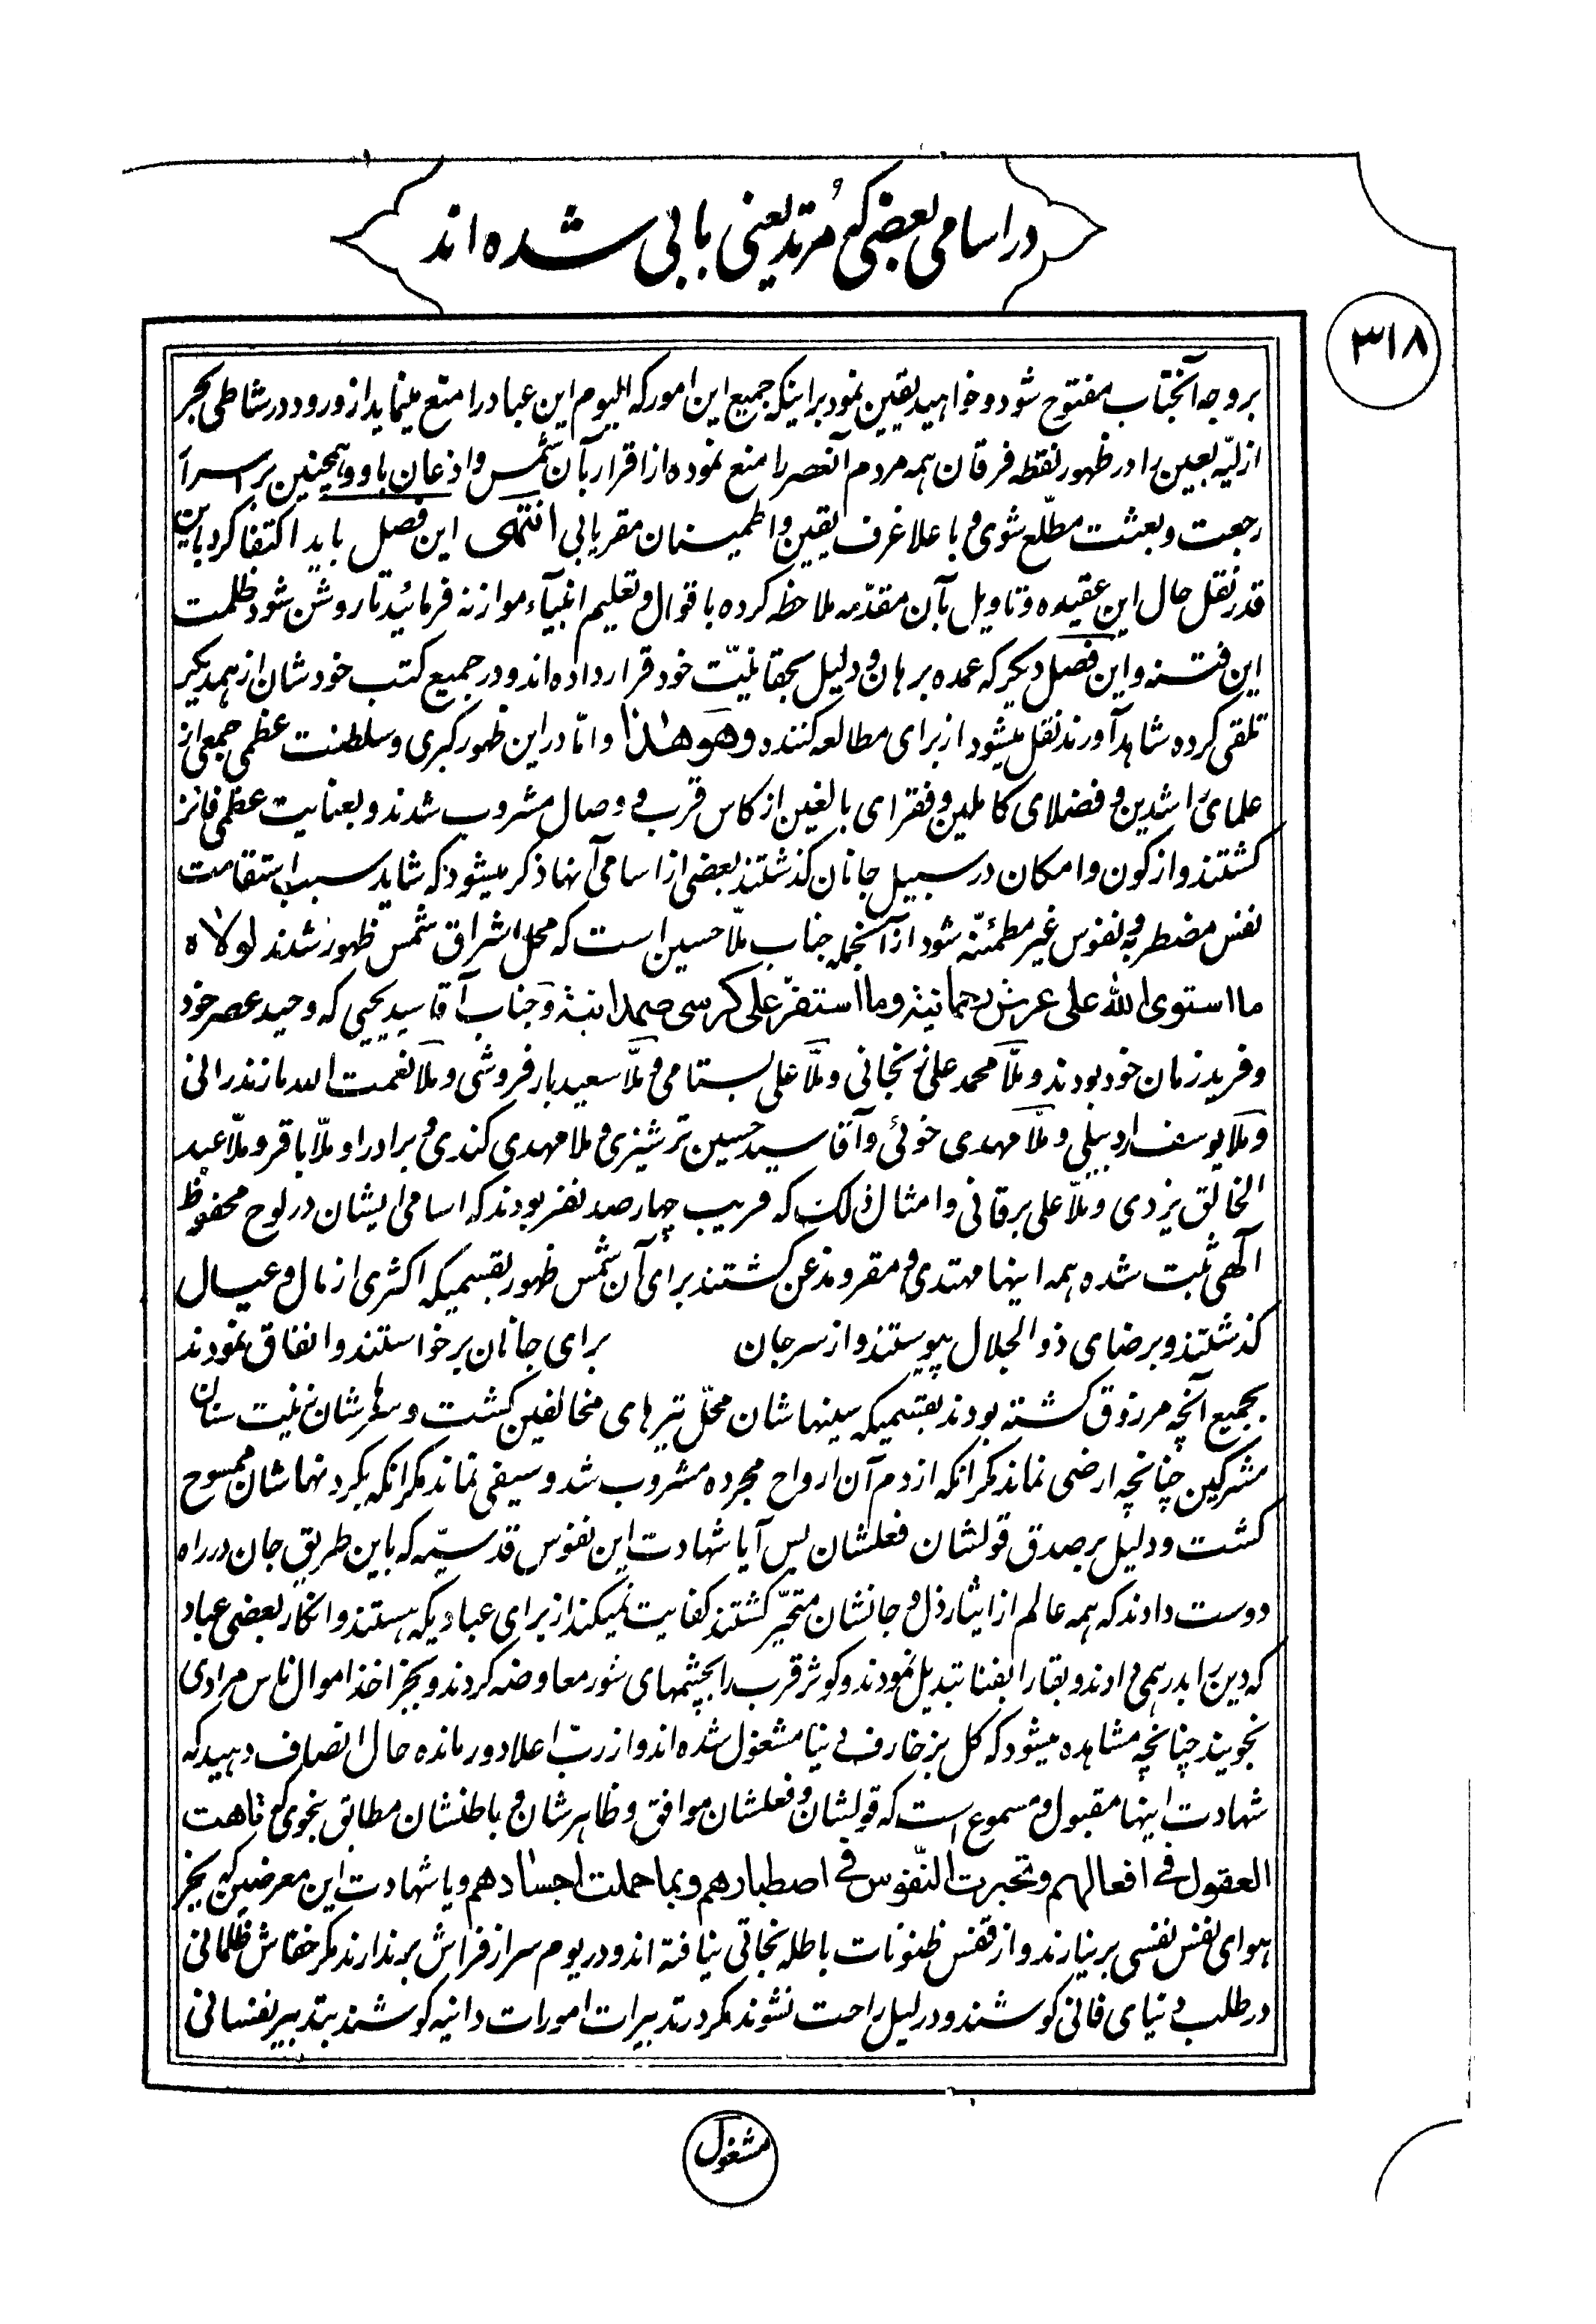 در اسامی بعضی که مُرتد یعنی بابی شده اند
۳۱۸
بر وجه آنجناب مفتوح شود و خواهید یقین نمود بر اینکه جمیع این امور که الیوم این عباد را منع مینماید از ورود در شاطی بحر
ازلیّه بعین را در ظهور نقطه فرقان همه مردم آنعصر را منع نموده از اقرار بآن شمس و اذعان باو و همچنین بر اسرار
رجعت و بعثت مطّلع شوی و باعلا غرف یقین و اطمینان مقر یابی انتهی این فصل باید اکتفا کرد باین
قدر نقل حال این عقیده و تاویل بآن مقدّمه ملاحظه کرده باقوال و تعلیم انبیآء موازنه فرمائید تا روشن شود ظلمت
این فتنه و این فصل دیگر که عمده برهان و دلیل بحقانیّت خود قرار داده اند و در جمیع کتب خودشان از همدیگر
تلقی کرده شاهد آورند نقل میشود از برای مطالعه کننده وهو هذا و امّا در این ظهور کبری و سلطنت عظمی جمعی از
علمای راشدین و فضلای کاملین و فقرای بالغین از کاس قرب و وصال مشروب شدند و بعنایت عظمی فائز
گشتند و از کون و امکان در سبیل جانان گذشتند بعضی از اسامی آنها ذکر میشود که شاید سبب استقامت
نفس مضطربه و نفوس غیر مطمئنّه شود از آنجمله جناب ملّا حسین است که محل اشراق شمس ظهور شدند لولاه
ما استوی الله علی عرش رحمانیته وما استقرّ علی کرسی صمدانیته و جناب آقا سید یحیی که وحید عصر خود
و فرید زمان خود بودند و ملّا محمد علی زنجانی و ملّا علی بستامی و ملّا سعید بارفروشی و ملّا نعمت الله مازندرانی
و ملّا یوسف اردبیلی و ملّا مهدی خوئی و آقا سید حسین ترشیزی و ملا مهدی کندی و برادر او ملّا باقر و ملّا عبد
الخالق یزدی و ملّا علی برقانی و امثال ذلک که قریب چهارصد نفر بودند که اسامی ایشان در لوح محفوظ
الهی ثبت شده همه اینها مهتدی و مقر و مذعن گشتند برای آن شمس ظهور بقسمیکه اکثری از مال و عیال
گذشتند و برضای ذوالجلال پیوستند و از سر جان برای جانان برخواستند و انفاق نمودند
بجمیع آنچه مرزوق گشته بودند بقسمیکه سینهاشان محلّ تیرهای مخالفین گشت و سرهاشان زینت سنان
مشرکین چنانچه ارضی نماند مگر انکه از دم آن ارواح مجرده مشروب شد و سیفی نماند مگر انکه بگردنهاشان ممسوح
گشت و دلیل بر صدق قولشان فعلشان بس آیا شهادت این نفوس قدسیّه که باین طریق جان در راه
دوست دادند که همه عالم از ایثار دل و جانشان متحیّر گشتند کفایت نمیکند از برای عبادیکه هستند و انکار بعضی عباد
که دین را بدرهمی دادند و بقا را بفنا تبدیل نمودند و کوثر قرب را بچشمهای شور معاوضه کردند و بجز اخذ اموال ناس مرادی
نجویند چنانچه مشاهده میشود که کل بزخارف دنیا مشغول شده اند و از ربّ اعلا دور مانده حال انصاف دهید که
شهادت اینها مقبول و مسموع است که قولشان و فعلشان موافق و ظاهرشان و باطنشان مطابق بنحوی که تاهت
العقول فی افعالهم و تحیرت النّفوس فی اصطبارهم و بما حملت اجسادهم و یا شهادت این معرضین که بجز
هوای نفس نفسی بر نیارند و از قفس ظنونات باطله نجاتی نیافته اند و در یوم سر از فراش برندارند مگر خفاش ظلمانی
در طلب دنیای فانی کوشند و در لیل راحت نشوند مگر در تدبیرات امورات دانیه کوشند بتدبیر نفسانی
مشغول